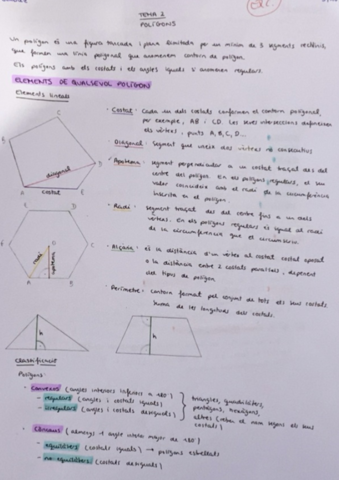 TEMA 2
POLÍGONS
Un polígon és una figura tancada i plana limitada per un mínim de 3 segments rectilinis,
que formen una línia poligonal que anomenem contorn de polígon.
Els polígons amb els costats i els angles iguals s'anomenen regulars.
ELEMENTS DE QUALSEVOL POLÍGON
Elements lineals
· Costat: Cada un dels costats conformen el contorn poligonal,
per exemple, AB i CD. Les seves interseccions defineixen
els vèrtexs; punts A, B, C, D...
· Diagonal: Segment que uneix dos vèrtexs no consecutius
· Apotema: segment perpendicular a un costat traçat des del
centre del polígon. En els polígons regulars, el seu
valor coincideix amb el radi de la circumferència
inscrita en el polígon.
· Radi: segment traçat des del centre fins a un dels
vèrtexs. En els polígons regulars és igual al radi
de la circumferència que el circumscriu.
· Alçada: és la distància d'un vèrtex al costat oposat
o la distància entre 2 costats paral·lels, depenent
del tipus de polígon.
· Perímetre: contorn format pel conjunt de tots els seus costats
Suma de les longituds dels costats.
diagonal
costat
A
B
C
D
E
radi
apotema
O
h
h
Classificació
Polígons:
· Convexos (angles interiors inferiors a 180°)
- regulars (angles i costats iguals)
- irregulars (angles i costats desiguals)
triangles, quadrilàters,
pentàgons, hexàgons,
altres (reben el nom segons els seus
costats)
· Còncaus (almenys 1 angle intern major de 180°)
- equilàters (costats iguals) → polígons estrellats
- no equilàters (costats desiguals)